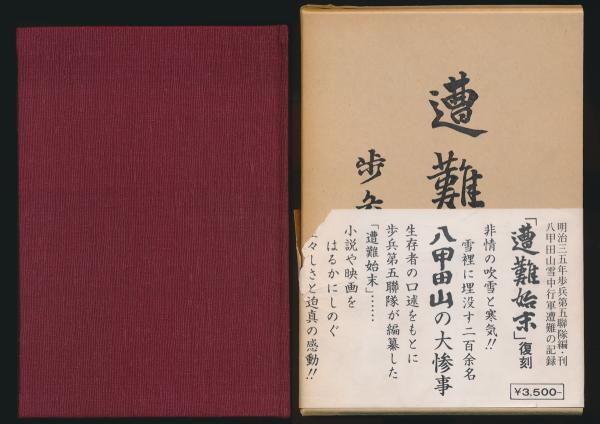 遭難
歩兵
明治三五年歩兵第五聯隊編・刊
八甲田山雪中行軍遭難の記録
「遭難始末」復刻
非情の吹雪と寒気!!
雪裡に埋没す二百余名
八甲田山の大惨事
生存者の口述をもとに
歩兵第五聯隊が編纂した
「遭難始末」……
小説や映画を
はるかにしのぐ
々しさと迫真の感動!!
¥3,500-